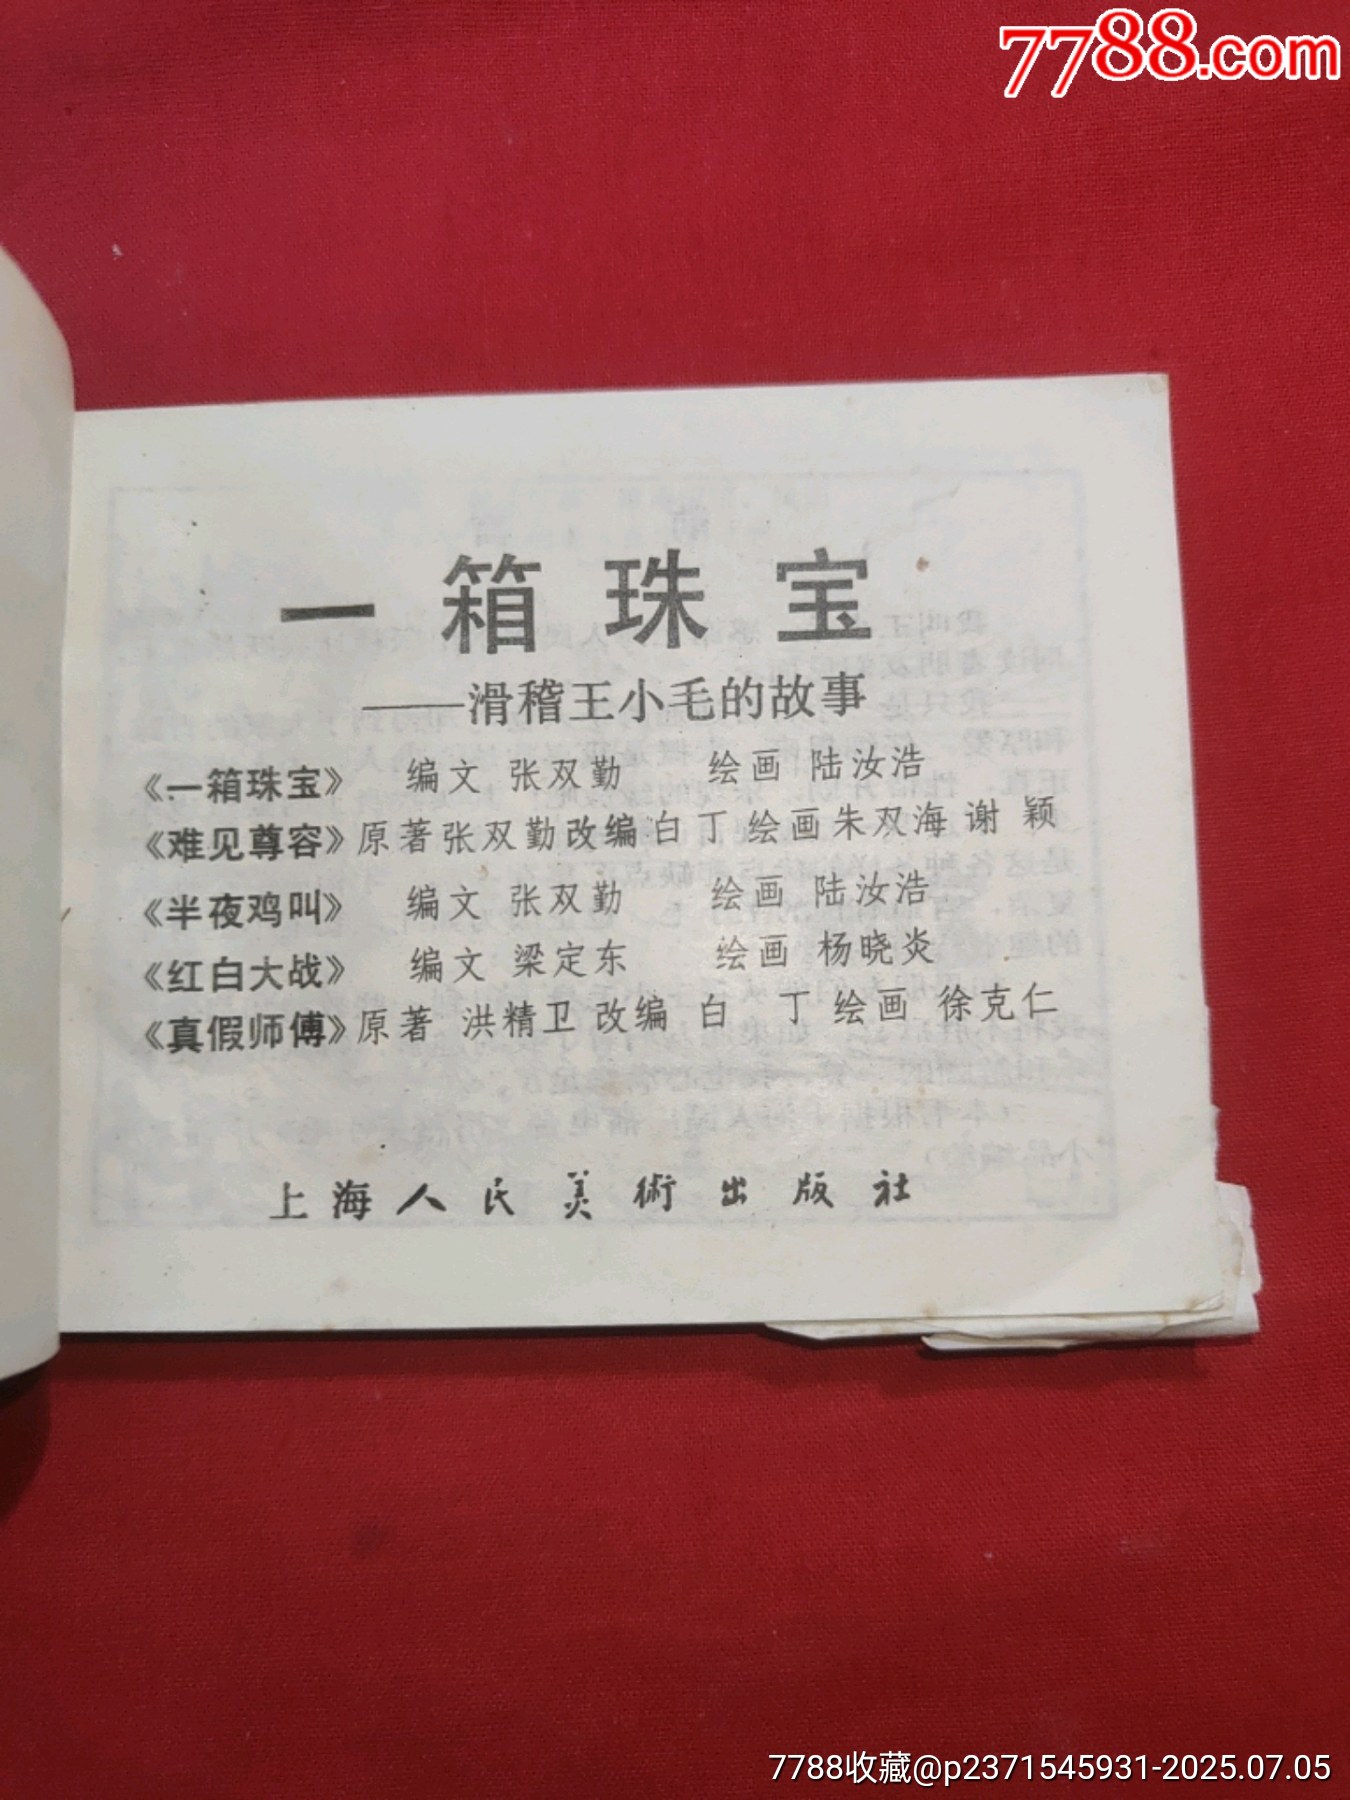 7788.com
一箱珠宝
——滑稽王小毛的故事
《一箱珠宝》 编文 张双勤 绘画 陆汝浩
《难见尊容》原著张双勤改编白丁绘画朱双海 谢颖
《半夜鸡叫》 编文 张双勤 绘画 陆汝浩
《红白大战》 编文 梁定东 绘画 杨晓炎
《真假师傅》原著 洪精卫 改编 白丁 绘画 徐克仁
上海人民美術出版社
7788收藏@p2371545931-2025.07.05